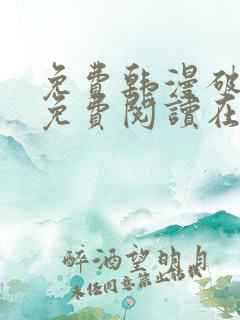 免费韩漫破
免费阅读在
醉酒望明月
未经同意禁止转载